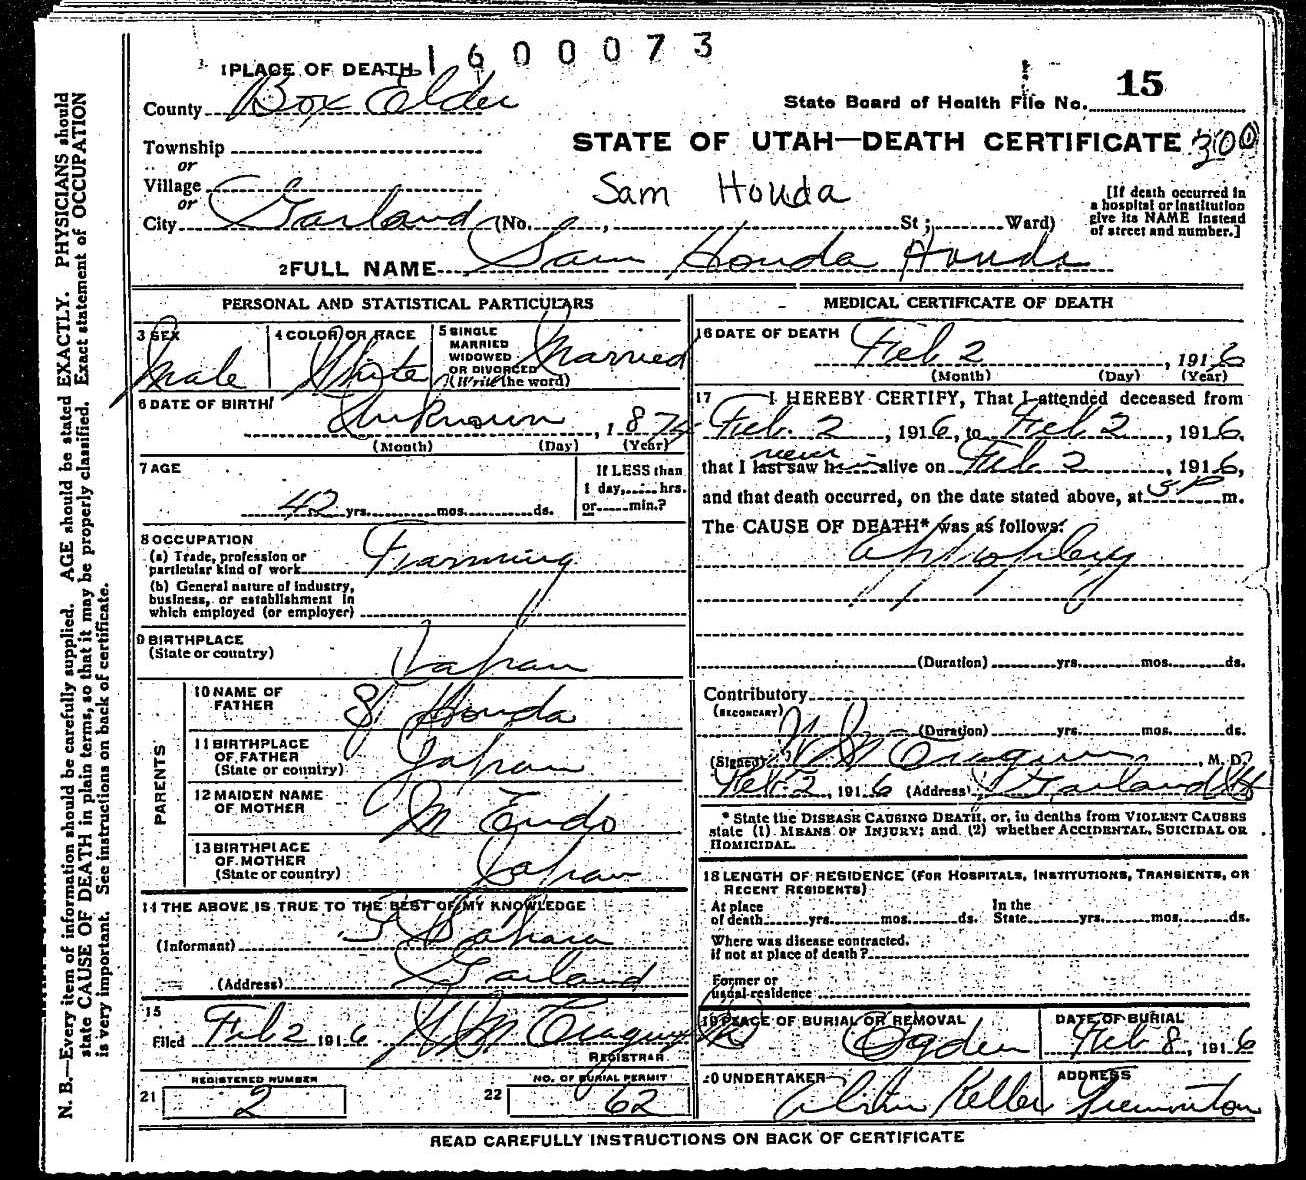 1600073
1 PLACE OF DEATH
County Box Elder
State Board of Health File No. 15
STATE OF UTAH—DEATH CERTIFICATE 300
Township
or
Village
or
City Garland (No. , St ; Ward)
Sam Honda
[If death occurred in
a hospital or institution
give its NAME instead
of street and number.]
2 FULL NAME Sam Honda Honda
PERSONAL AND STATISTICAL PARTICULARS
3 SEX
Male
4 COLOR OR RACE
White
5 SINGLE
MARRIED
WIDOWED
OR DIVORCED
(Write the word)
Married
6 DATE OF BIRTH
Unknown , 1874
(Month) (Day) (Year)
7 AGE
42 yrs. mos. ds.
If LESS than
1 day, hrs.
or min.?
8 OCCUPATION
(a) Trade, profession or
particular kind of work Framming
(b) General nature of industry,
business, or establishment in
which employed (or employer)
9 BIRTHPLACE
(State or country)
Japan
PARENTS
10 NAME OF
FATHER
Honda
11 BIRTHPLACE
OF FATHER
(State or country)
Japan
12 MAIDEN NAME
OF MOTHER
M Endo
13 BIRTHPLACE
OF MOTHER
(State or country)
Japan
14 THE ABOVE IS TRUE TO THE BEST OF MY KNOWLEDGE
(Informant)
(Address) Garland
15
Filed Feb 2 1916
REGISTRAR
REGISTERED NUMBER
21 2
NO. OF BURIAL PERMIT
22 62
MEDICAL CERTIFICATE OF DEATH
16 DATE OF DEATH
Feb 2 , 1916
(Month) (Day) (Year)
17 I HEREBY CERTIFY, That I attended deceased from
Feb. 2 , 1916, to Feb 2 , 1916,
never
that I last saw h alive on Feb 2 , 1916,
and that death occurred, on the date stated above, at 5 P m.
The CAUSE OF DEATH* was as follows:
appoplexy
(Duration) yrs. mos. ds.
Contributory
(SECONDARY)
(Duration) yrs. mos. ds.
(Signed) , M. D.
Feb. 2, 1916 (Address) Garland Ut
* State the DISEASE CAUSING DEATH, or, in deaths from VIOLENT CAUSES
state (1) MEANS OF INJURY; and (2) whether ACCIDENTAL, SUICIDAL OR
HOMICIDAL.
18 LENGTH OF RESIDENCE (FOR HOSPITALS, INSTITUTIONS, TRANSIENTS, OR
RECENT RESIDENTS)
At place
of death yrs. mos. ds.
In the
State yrs. mos. ds.
Where was disease contracted.
if not at place of death?
Former or
usual residence
19 PLACE OF BURIAL OR REMOVAL
Ogden
DATE OF BURIAL
Feb 8, 1916
20 UNDERTAKER
Keller
ADDRESS
Tremonton
READ CAREFULLY INSTRUCTIONS ON BACK OF CERTIFICATE
N. B.—Every item of information should be carefully supplied. AGE should be stated EXACTLY. PHYSICIANS should
state CAUSE OF DEATH in plain terms, so that it may be properly classified. Exact statement of OCCUPATION
is very important. See instructions on back of certificate.